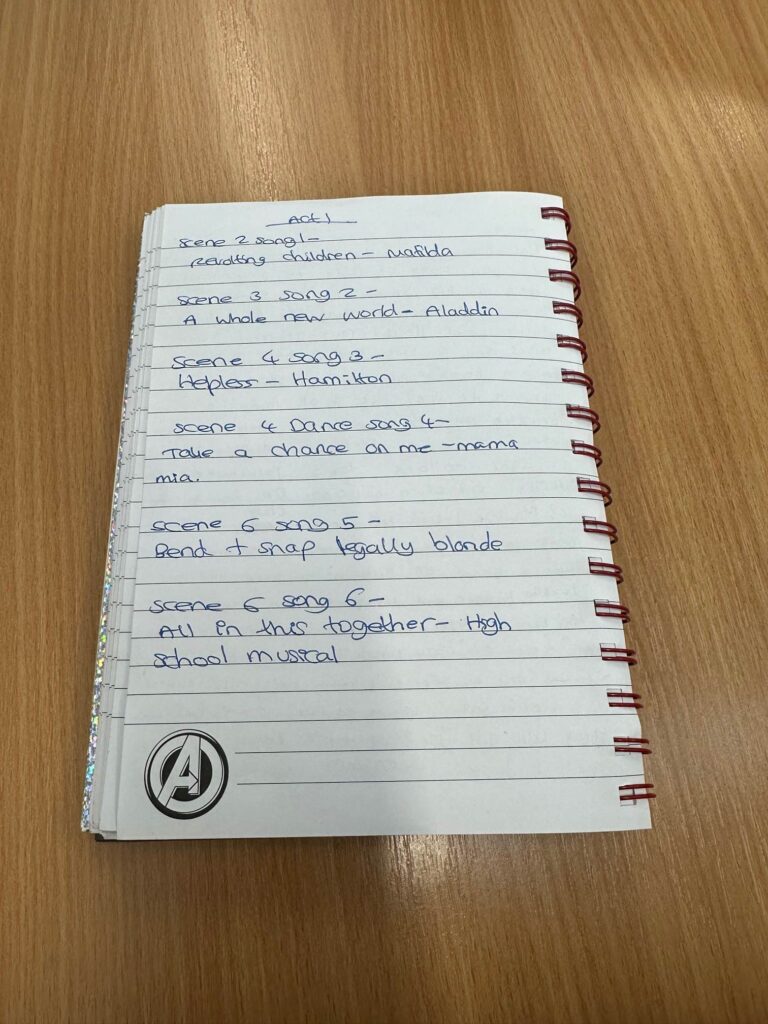 Act 1
Scene 2 song 1-
Revolting children - Matilda
Scene 3 song 2 -
A whole new world - Aladdin
Scene 4 song 3 -
Helpless - Hamilton
Scene 4 Dance song 4-
Take a chance on me - mama
mia.
Scene 6 song 5 -
Bend + snap legally blonde
Scene 6 song 6 -
All in this together - High
school musical